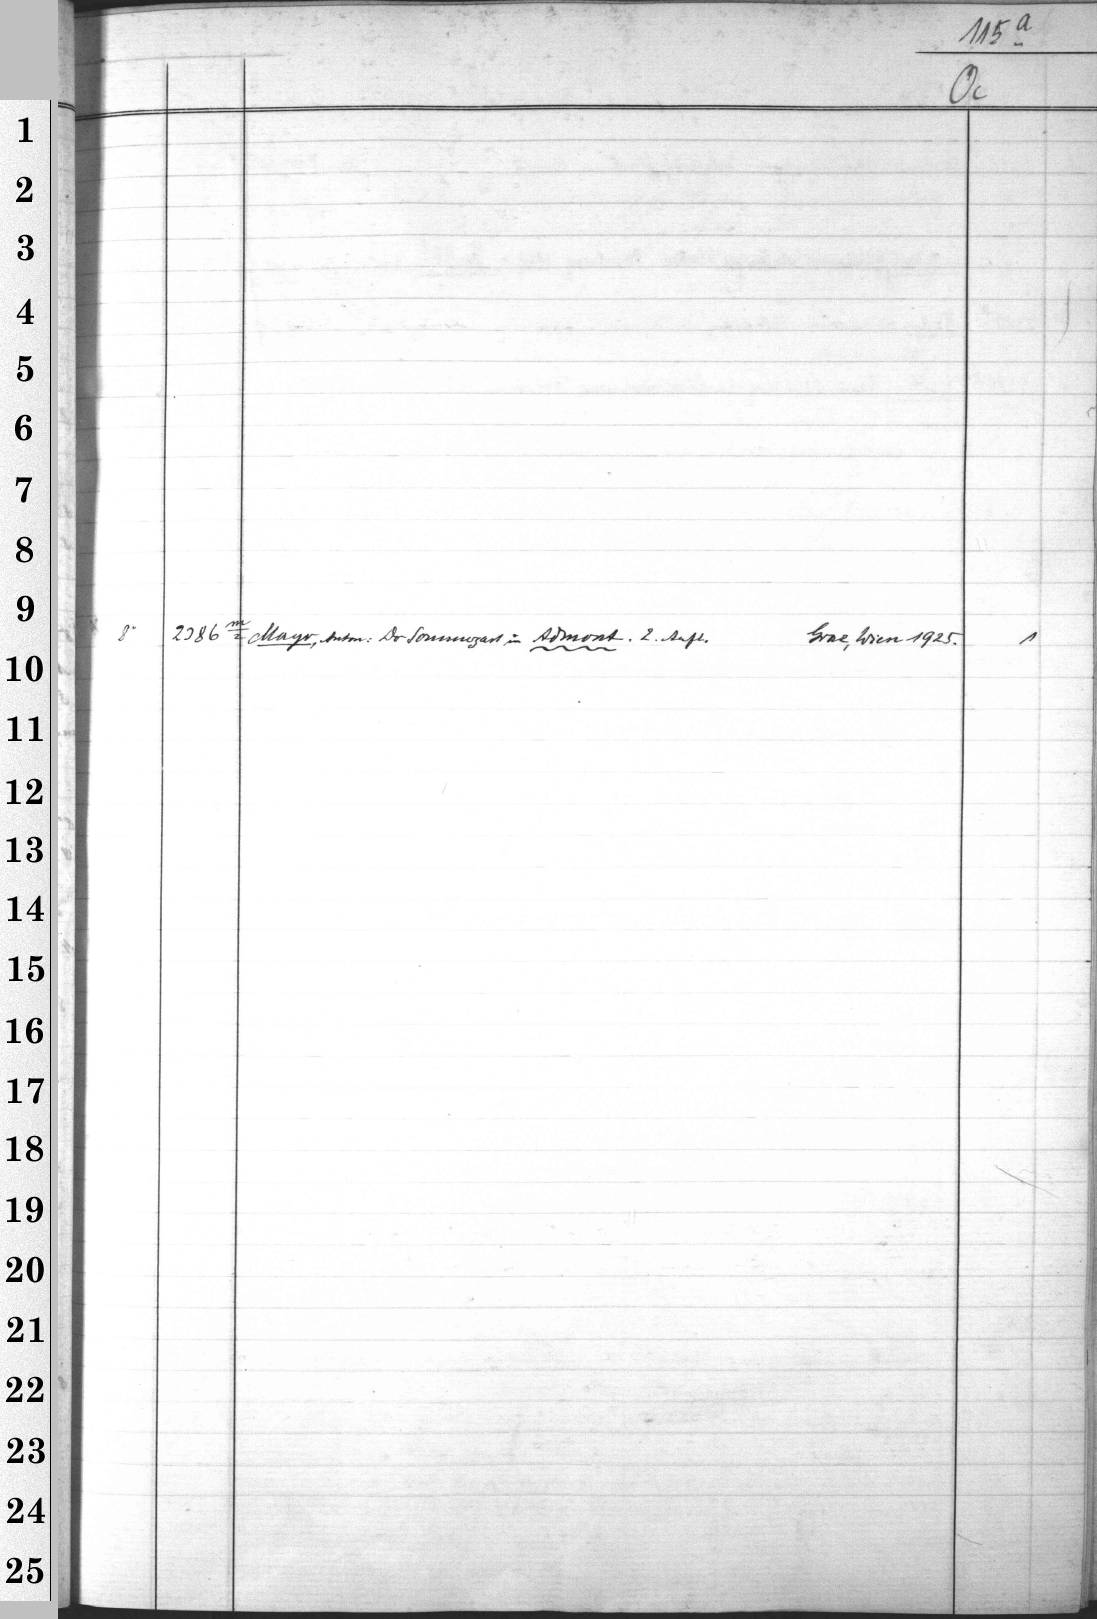 115a
Oc
1
2
3
4
5
6
7
8
9
8° 2386 m/2 Mayr, Anton: Der Sommergast in Admont. 2. Aufl. Graz, Wien 1925. 1
10
11
12
13
14
15
16
17
18
19
20
21
22
23
24
25